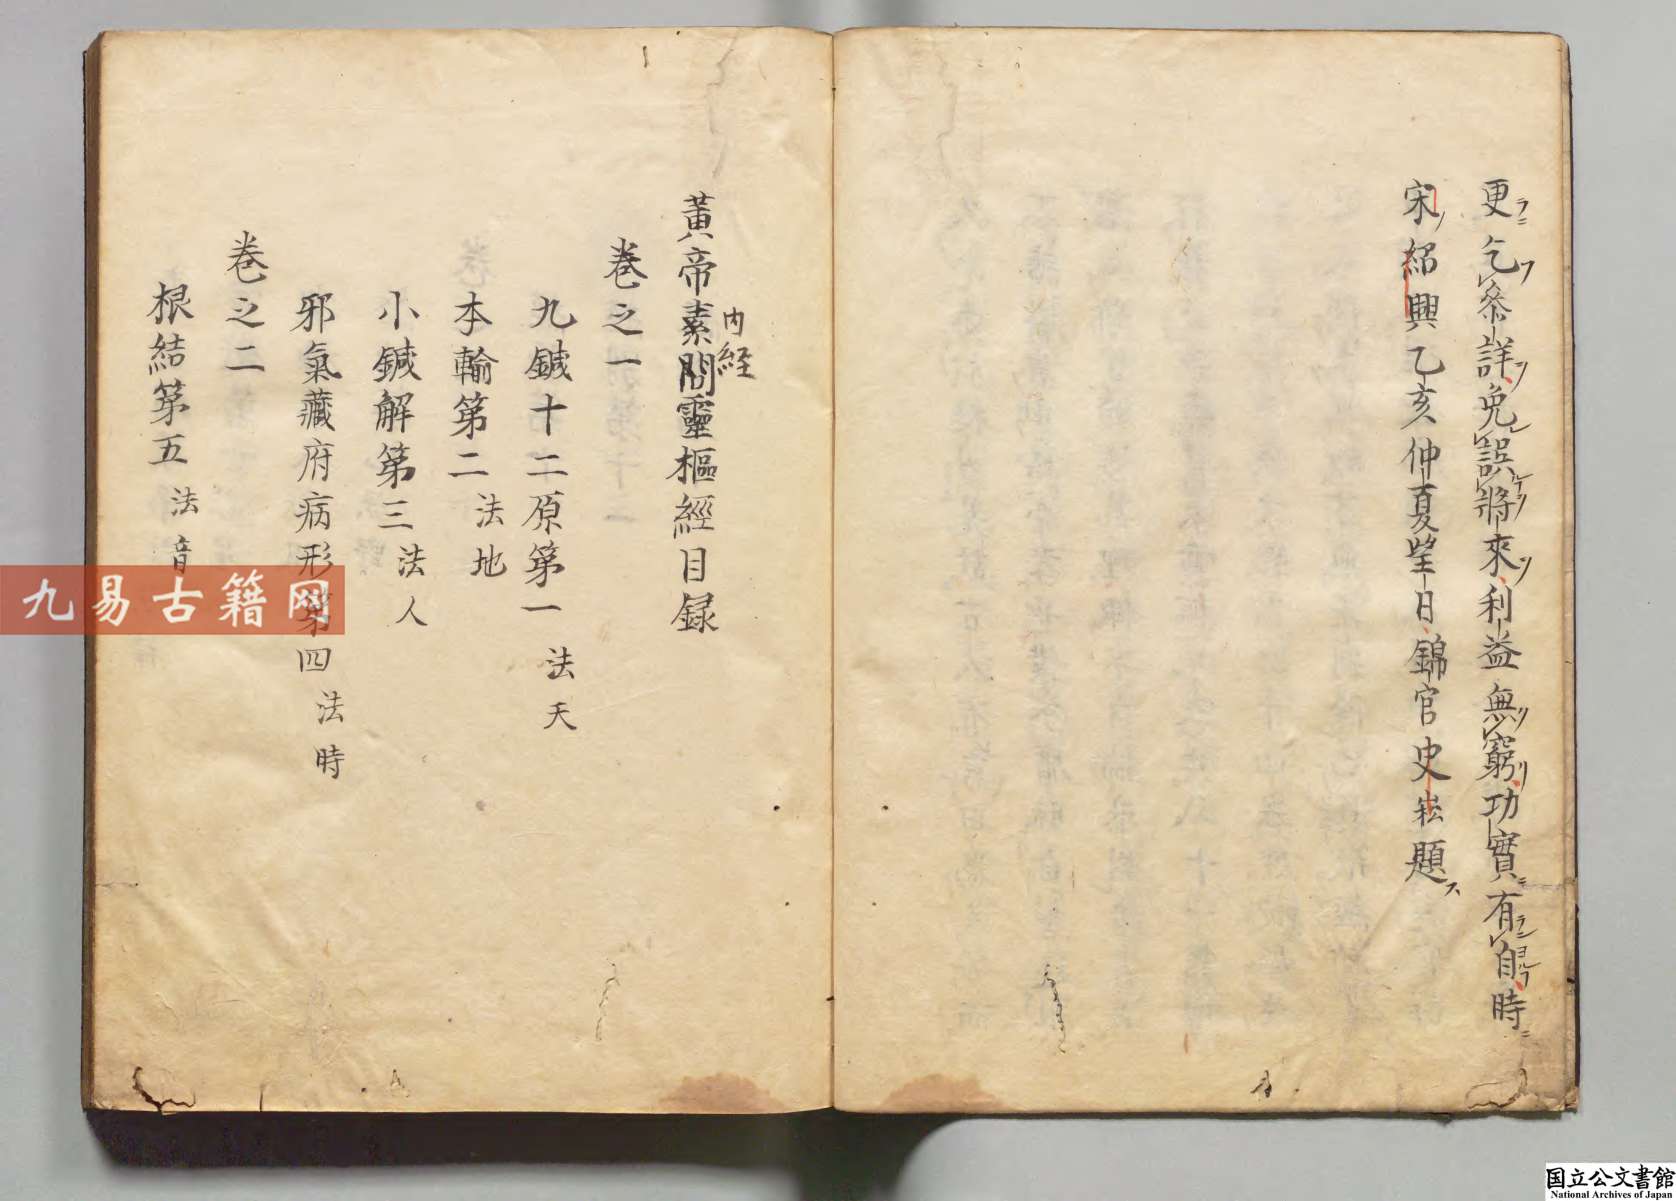 更乞叅詳免誤將來利益無窮功實有自時
宋紹興乙亥仲夏望日錦官史崧題
内経
黃帝素問靈樞經目録
巻之一
九鍼十二原第一 法天
本輸第二 法地
小鍼解第三 法人
邪氣藏府病形第四 法時
巻之二
根結第五 法音
九易古籍网
国立公文書館
National Archives of Japan